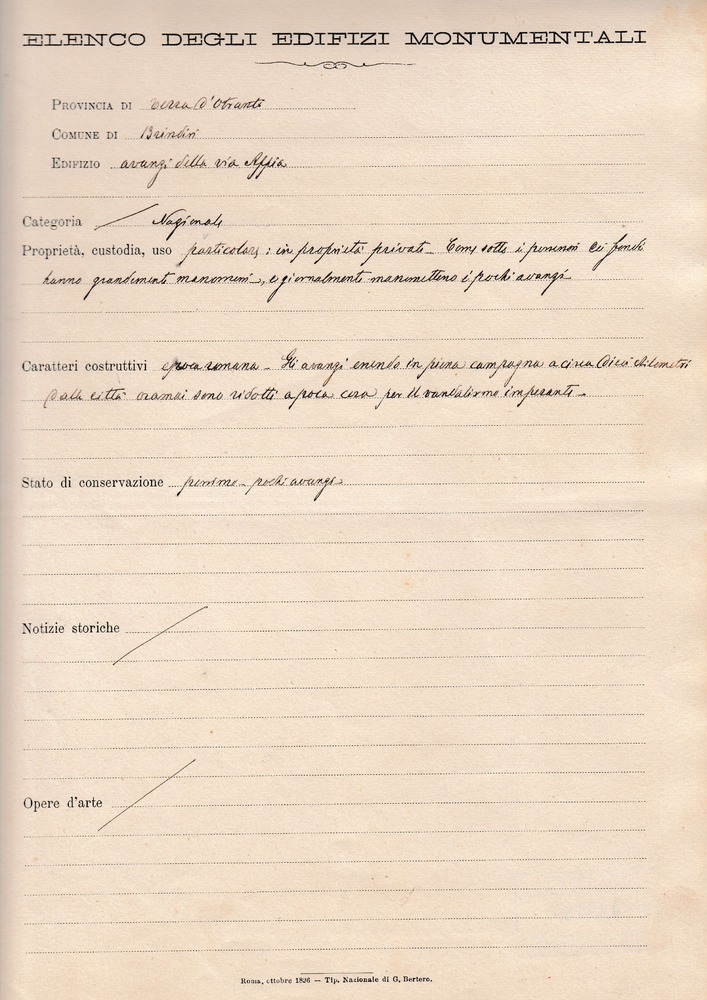 ELENCO DEGLI EDIFIZI MONUMENTALI
PROVINCIA DI Terra d'Otranto
COMUNE DI Brindisi
EDIFIZIO avanzi della via Appia
Categoria Nazionale
Proprietà, custodia, uso particolare: in proprietà privata - sotto i possessori dei fondi
hanno grandemente manomessi, e giornalmente manomettono i pochi avanzi
Caratteri costruttivi epoca romana - Gli avanzi essendo in piena campagna a circa dieci chilometri
dalla città oramai sono ridotti a poca cosa per il vandalismo imperante -
Stato di conservazione pessimo - pochi avanzi
Notizie storiche
Opere d'arte
Roma, ottobre 1896 — Tip. Nazionale di G. Bertero.